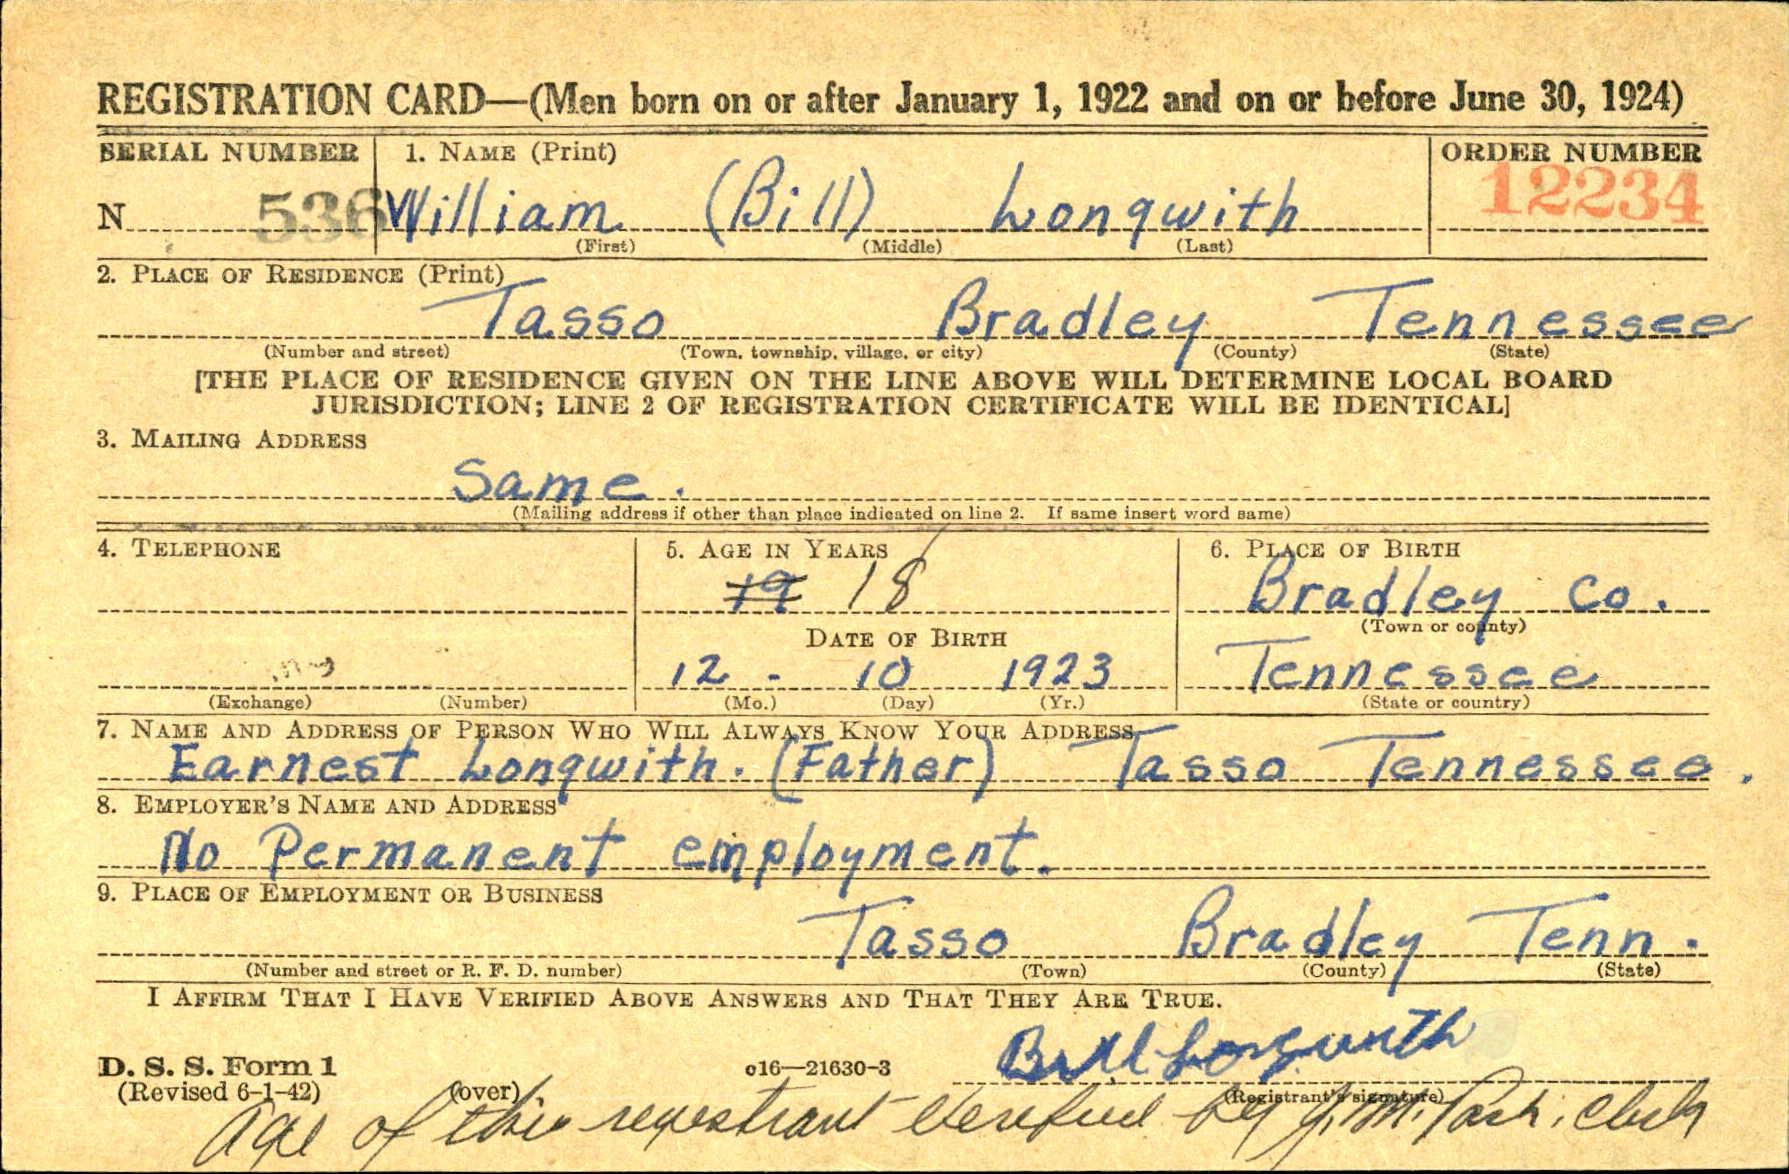 REGISTRATION CARD—(Men born on or after January 1, 1922 and on or before June 30, 1924)
SERIAL NUMBER 1. NAME (Print) ORDER NUMBER
N 536 William (Bill) Longwith 12234
(First) (Middle) (Last)
2. PLACE OF RESIDENCE (Print)
Tasso Bradley Tennessee
(Number and street) (Town, township, village, or city) (County) (State)
[THE PLACE OF RESIDENCE GIVEN ON THE LINE ABOVE WILL DETERMINE LOCAL BOARD
JURISDICTION; LINE 2 OF REGISTRATION CERTIFICATE WILL BE IDENTICAL]
3. MAILING ADDRESS
Same.
(Mailing address if other than place indicated on line 2. If same insert word same)
4. TELEPHONE 5. AGE IN YEARS 6. PLACE OF BIRTH
19 18 Bradley Co.
(Town or county)
DATE OF BIRTH
12 - 10 1923 Tennessee
(Exchange) (Number) (Mo.) (Day) (Yr.) (State or country)
7. NAME AND ADDRESS OF PERSON WHO WILL ALWAYS KNOW YOUR ADDRESS
Earnest Longwith. (Father) Tasso Tennessee.
8. EMPLOYER'S NAME AND ADDRESS
No Permanent employment.
9. PLACE OF EMPLOYMENT OR BUSINESS
Tasso Bradley Tenn.
(Number and street or R. F. D. number) (Town) (County) (State)
I AFFIRM THAT I HAVE VERIFIED ABOVE ANSWERS AND THAT THEY ARE TRUE.
Bill Longwith
D. S. S. Form 1 c16—21630-3
(Revised 6-1-42) (over) (Registrant's signature)
Age of this registrant verified by J. M. Clerk